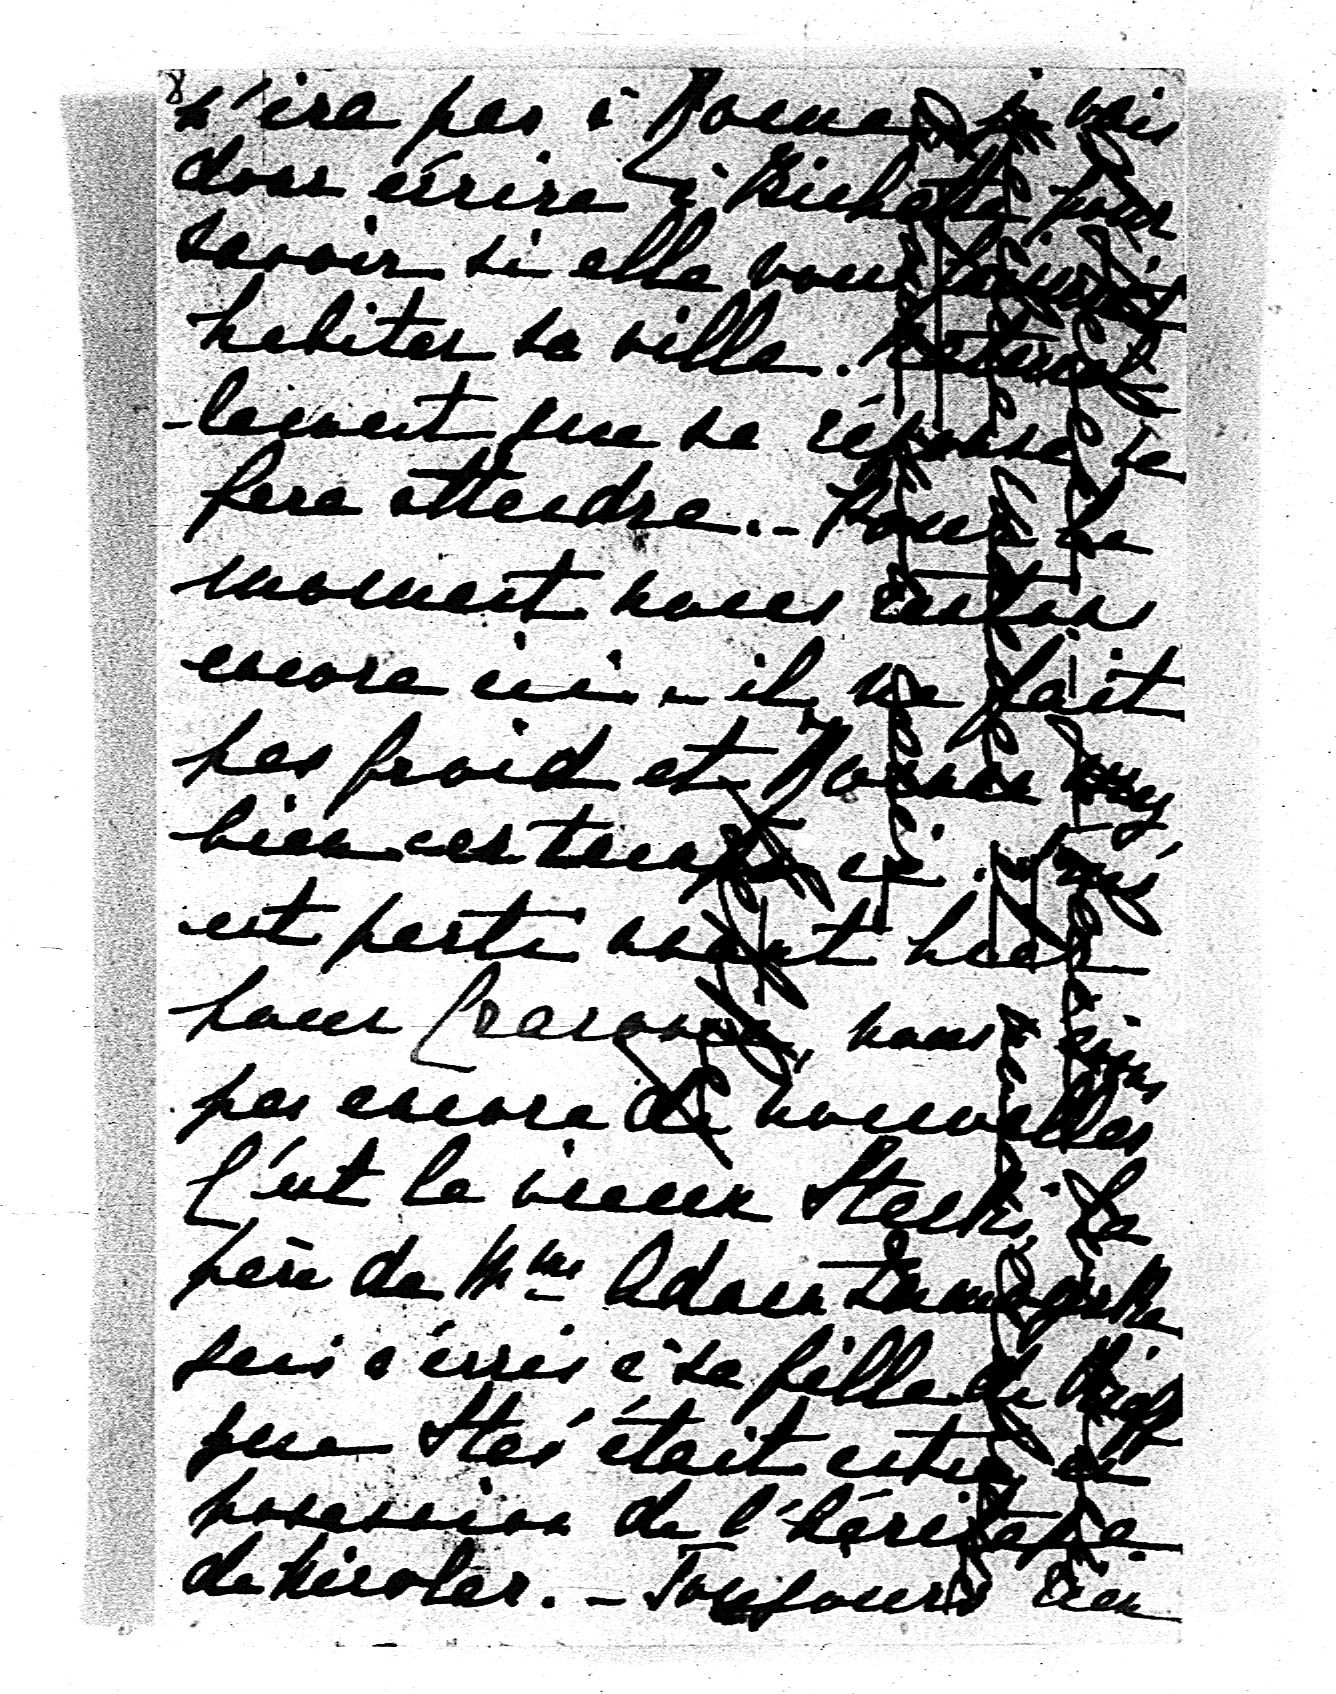 8
n'ira pas à Rome, je vais
donc écrire à Bichette pour
savoir si elle voudrait
habiter sa villa. Naturel
-lement que sa réponse se
fera attendre. - Pour le
moment nous restons
encore ici - il ne fait
pas froid et Maman va
bien ces temps ci.
est parti avant hier
pour Cracovie, nous
pas encore de nouvelles
C'est le vieux Stecki, le
père de Mme Adam
qui a écrit à sa fille de
que Staś était entré en
possession de l'héritage
de Nicolas. - Toujours rien